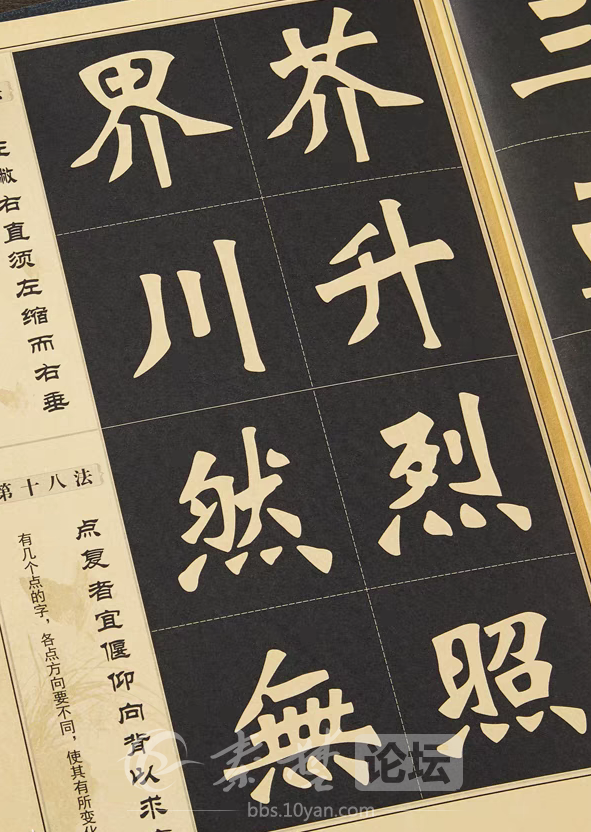 芥界
升川
烈然
照無
左撇右直须左缩而右垂
第十八法
点复者宜偃仰向背以求
有几个点的字，各点方向要不同，使其有所变化
秦楚论坛
bbs.10yan.com